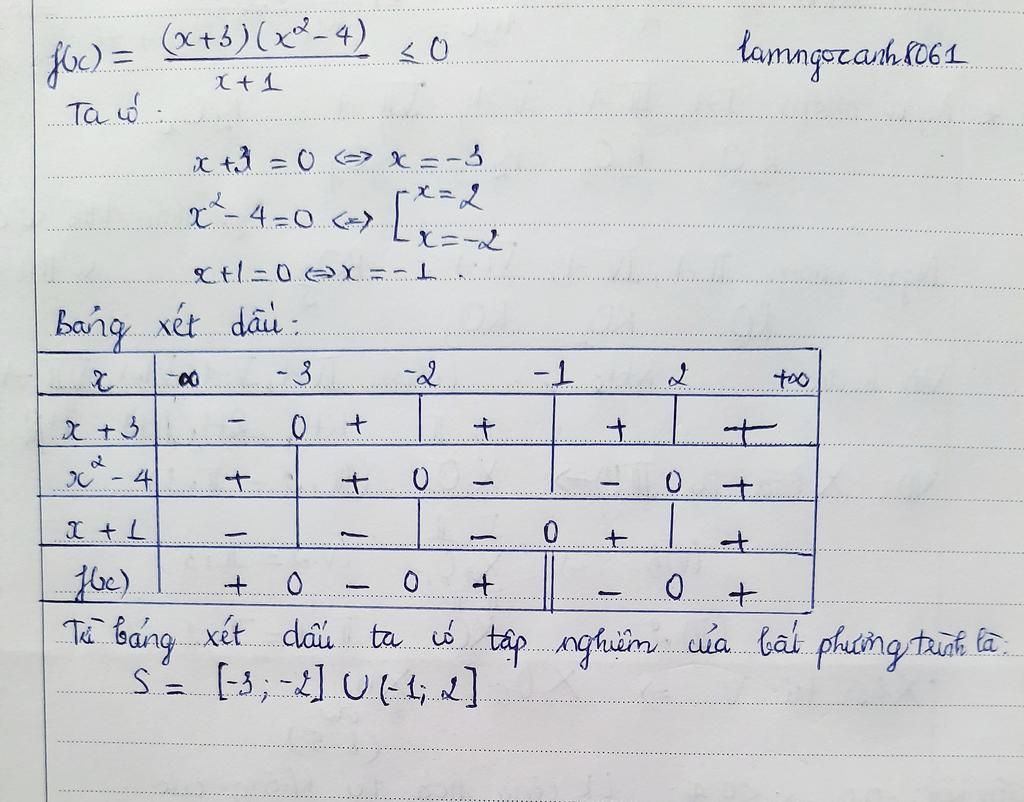 f(x) = (x+3)(x²-4)/(x+1) ≤ 0 lamngocanh8061
Ta có :
x+3 = 0 <=> x = -3
x² - 4 = 0 <=> [x = 2
x = -2
x+1 = 0 <=> x = -1 .
Bảng xét dấu :
x -∞ -3 -2 -1 2 +∞
x + 3 - 0 + | + | + | +
x² - 4 + | + 0 - | - 0 +
x + 1 - | - | - 0 + | +
f(x) + 0 - 0 + || - 0 +
Từ bảng xét dấu ta có tập nghiệm của bất phương trình là:
S = [-3; -2] ∪ (-1; 2]